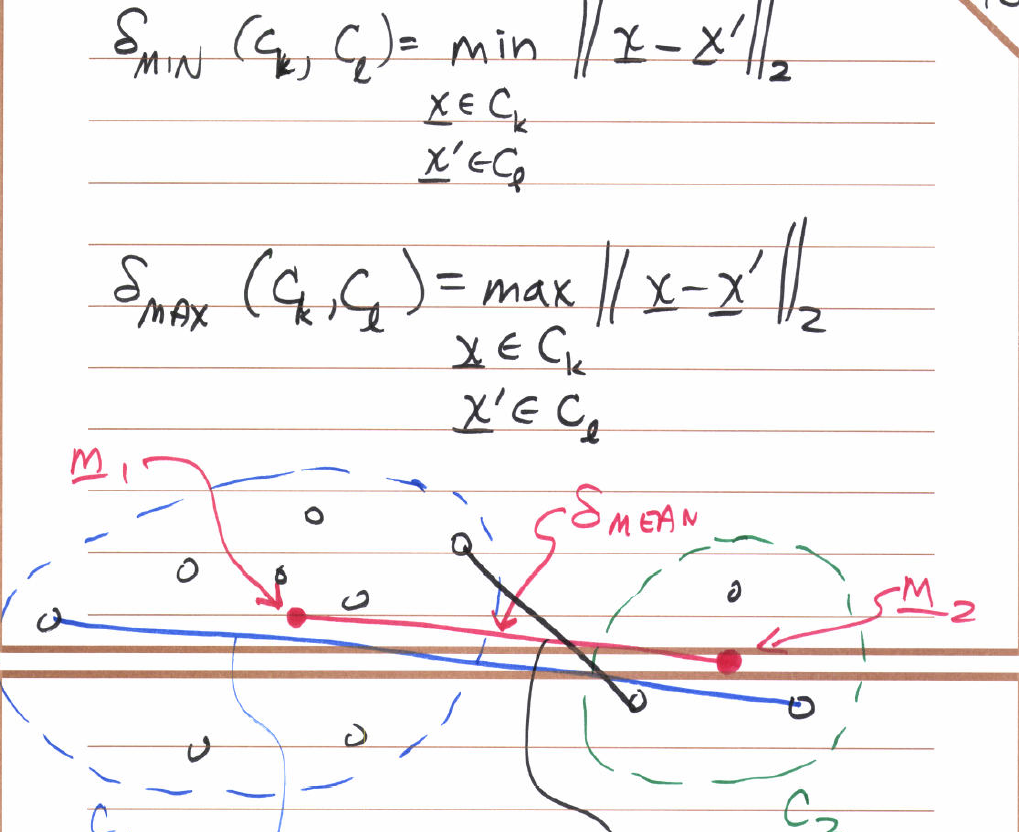 δ_MIN (C_k, C_l) = min ‖x - x'‖_2
x ∈ C_k
x' ∈ C_l
δ_MAX (C_k, C_l) = max ‖x - x'‖_2
x ∈ C_k
x' ∈ C_l
m_1
δ_MEAN
m_2
C_2